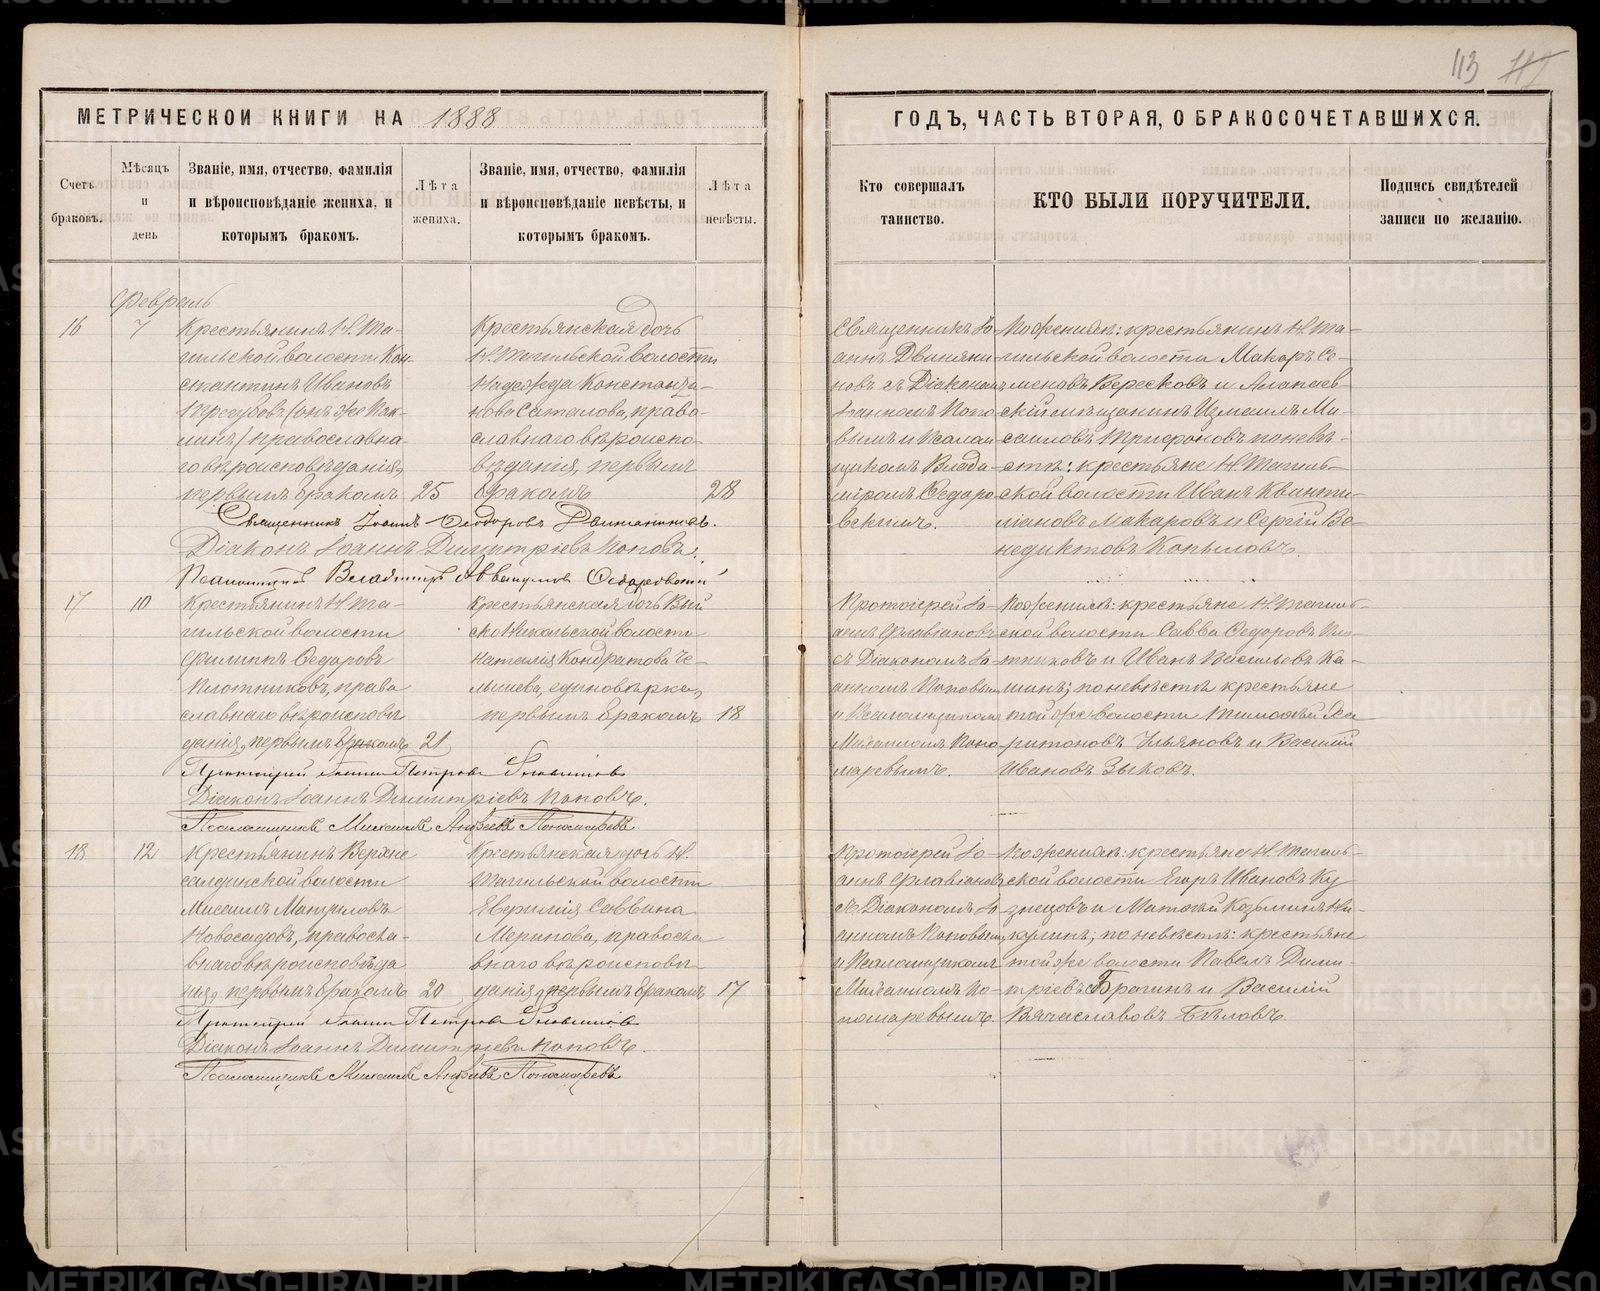 113
МЕТРИЧЕСКОЙ КНИГИ НА 1888
ГОДЪ, ЧАСТЬ ВТОРАЯ, О БРАКОСОЧЕТАВШИХСЯ.
Счетъ браковъ.
Мѣсяцъ и день
Званіе, имя, отчество, фамилія
и вѣроисповѣданіе жениха, и
которымъ бракомъ.
Лѣта жениха.
Званіе, имя, отчество, фамилія
и вѣроисповѣданіе невѣсты, и
которымъ бракомъ.
Лѣта невѣсты.
Кто совершалъ
таинство.
КТО БЫЛИ ПОРУЧИТЕЛИ.
Подпись свидѣтелей
записи по желанію.
Февраль
16
7
Крестьянинъ Н. Та-
гильской волости Кон-
стантинъ Ивановъ
(онъ же
православна-
го вѣроисповѣданія,
первымъ бракомъ
25
Крестьянская дочь
Н. Тагильской волости
Надежда Константи-
нова право-
славнаго вѣроиспо-
вѣданія, первымъ
бракомъ
28
Священникъ Іо-
аннъ Двиняни-
новъ съ Діакономъ
Іоанномъ Попо-
вымъ и Псалом-
щикомъ Влади-
міромъ Ѳедоро-
вскимъ.
По женихѣ: крестьянинъ Н. Та-
гильской волости Макаръ Се-
меновъ Вересковъ и Алапаев-
скій мѣщанинъ Измаилъ Ма-
Трифоновъ по невѣ-
стѣ: крестьяне Н. Тагиль-
ской волости Иванъ Квинти-
ліановъ Макаровъ и Сергій Ве-
недиктовъ Копыловъ.
Священникъ Іоаннъ Ѳеодоровъ
Діаконъ Іоаннъ Димитріевъ Поповъ.
Псаломщикъ Владиміръ Ѳедоровскій
17
10
Крестьянинъ Н. Та-
гильской волости
Филиппъ Ѳедоровъ
Плотниковъ, право
славнаго вѣроисповѣ
данія, первымъ бракомъ
21
Крестьянская дочь Вый
ско Никольской волости
Наталія Кондратова Че-
единовѣрка,
первымъ бракомъ
18
Протоіерей Іо-
аннъ Флавіановъ
съ Діакономъ Іо-
анномъ Поповымъ
и Псаломщикомъ
Михаиломъ Поно-
маревымъ.
По женихѣ: крестьяне Н. Тагиль-
ской волости Савва Ѳедоровъ Пло-
тниковъ и Иванъ Васильевъ Ка-
шинъ; по невѣстѣ крестьяне
той же волости Тимоѳей Ха-
ритоновъ Ульяновъ и Василій
Ивановъ Зыковъ.
Протоіерей Іоаннъ Петровъ Флавіановъ
Діаконъ Іоаннъ Димитріевъ Поповъ.
Псаломщикъ Михаилъ Андреевъ Пономаревъ
18
12
Крестьянинъ Верхне
салдинской волости
Мисаилъ
Новосадовъ, правосла-
внаго вѣроисповѣда
нія, первымъ бракомъ
20
Крестьянская дочь Н.
Тагильской волости
Саввина
Меринова, правосла
внаго вѣроисповѣ
данія, первымъ бракомъ
17
Протоіерей Іо-
аннъ Флавіановъ
съ Діакономъ Іо-
анномъ Поповымъ
и Псаломщикомъ
Михаиломъ По-
номаревымъ.
По женихѣ: крестьяне Н. Тагиль-
ской волости Егоръ Ивановъ Ку
знецовъ и Матвѣй Козьминъ Ни-
кулинъ; по невѣстѣ: крестьяне
той же волости Павелъ Дими-
тріевъ Брагинъ и Василій
Вячеславовъ Бѣловъ.
Протоіерей Іоаннъ Петровъ Флавіановъ
Діаконъ Іоаннъ Димитріевъ Поповъ.
Псаломщикъ Михаилъ Андреевъ Пономаревъ
METRIKI.GASO-URAL.RU